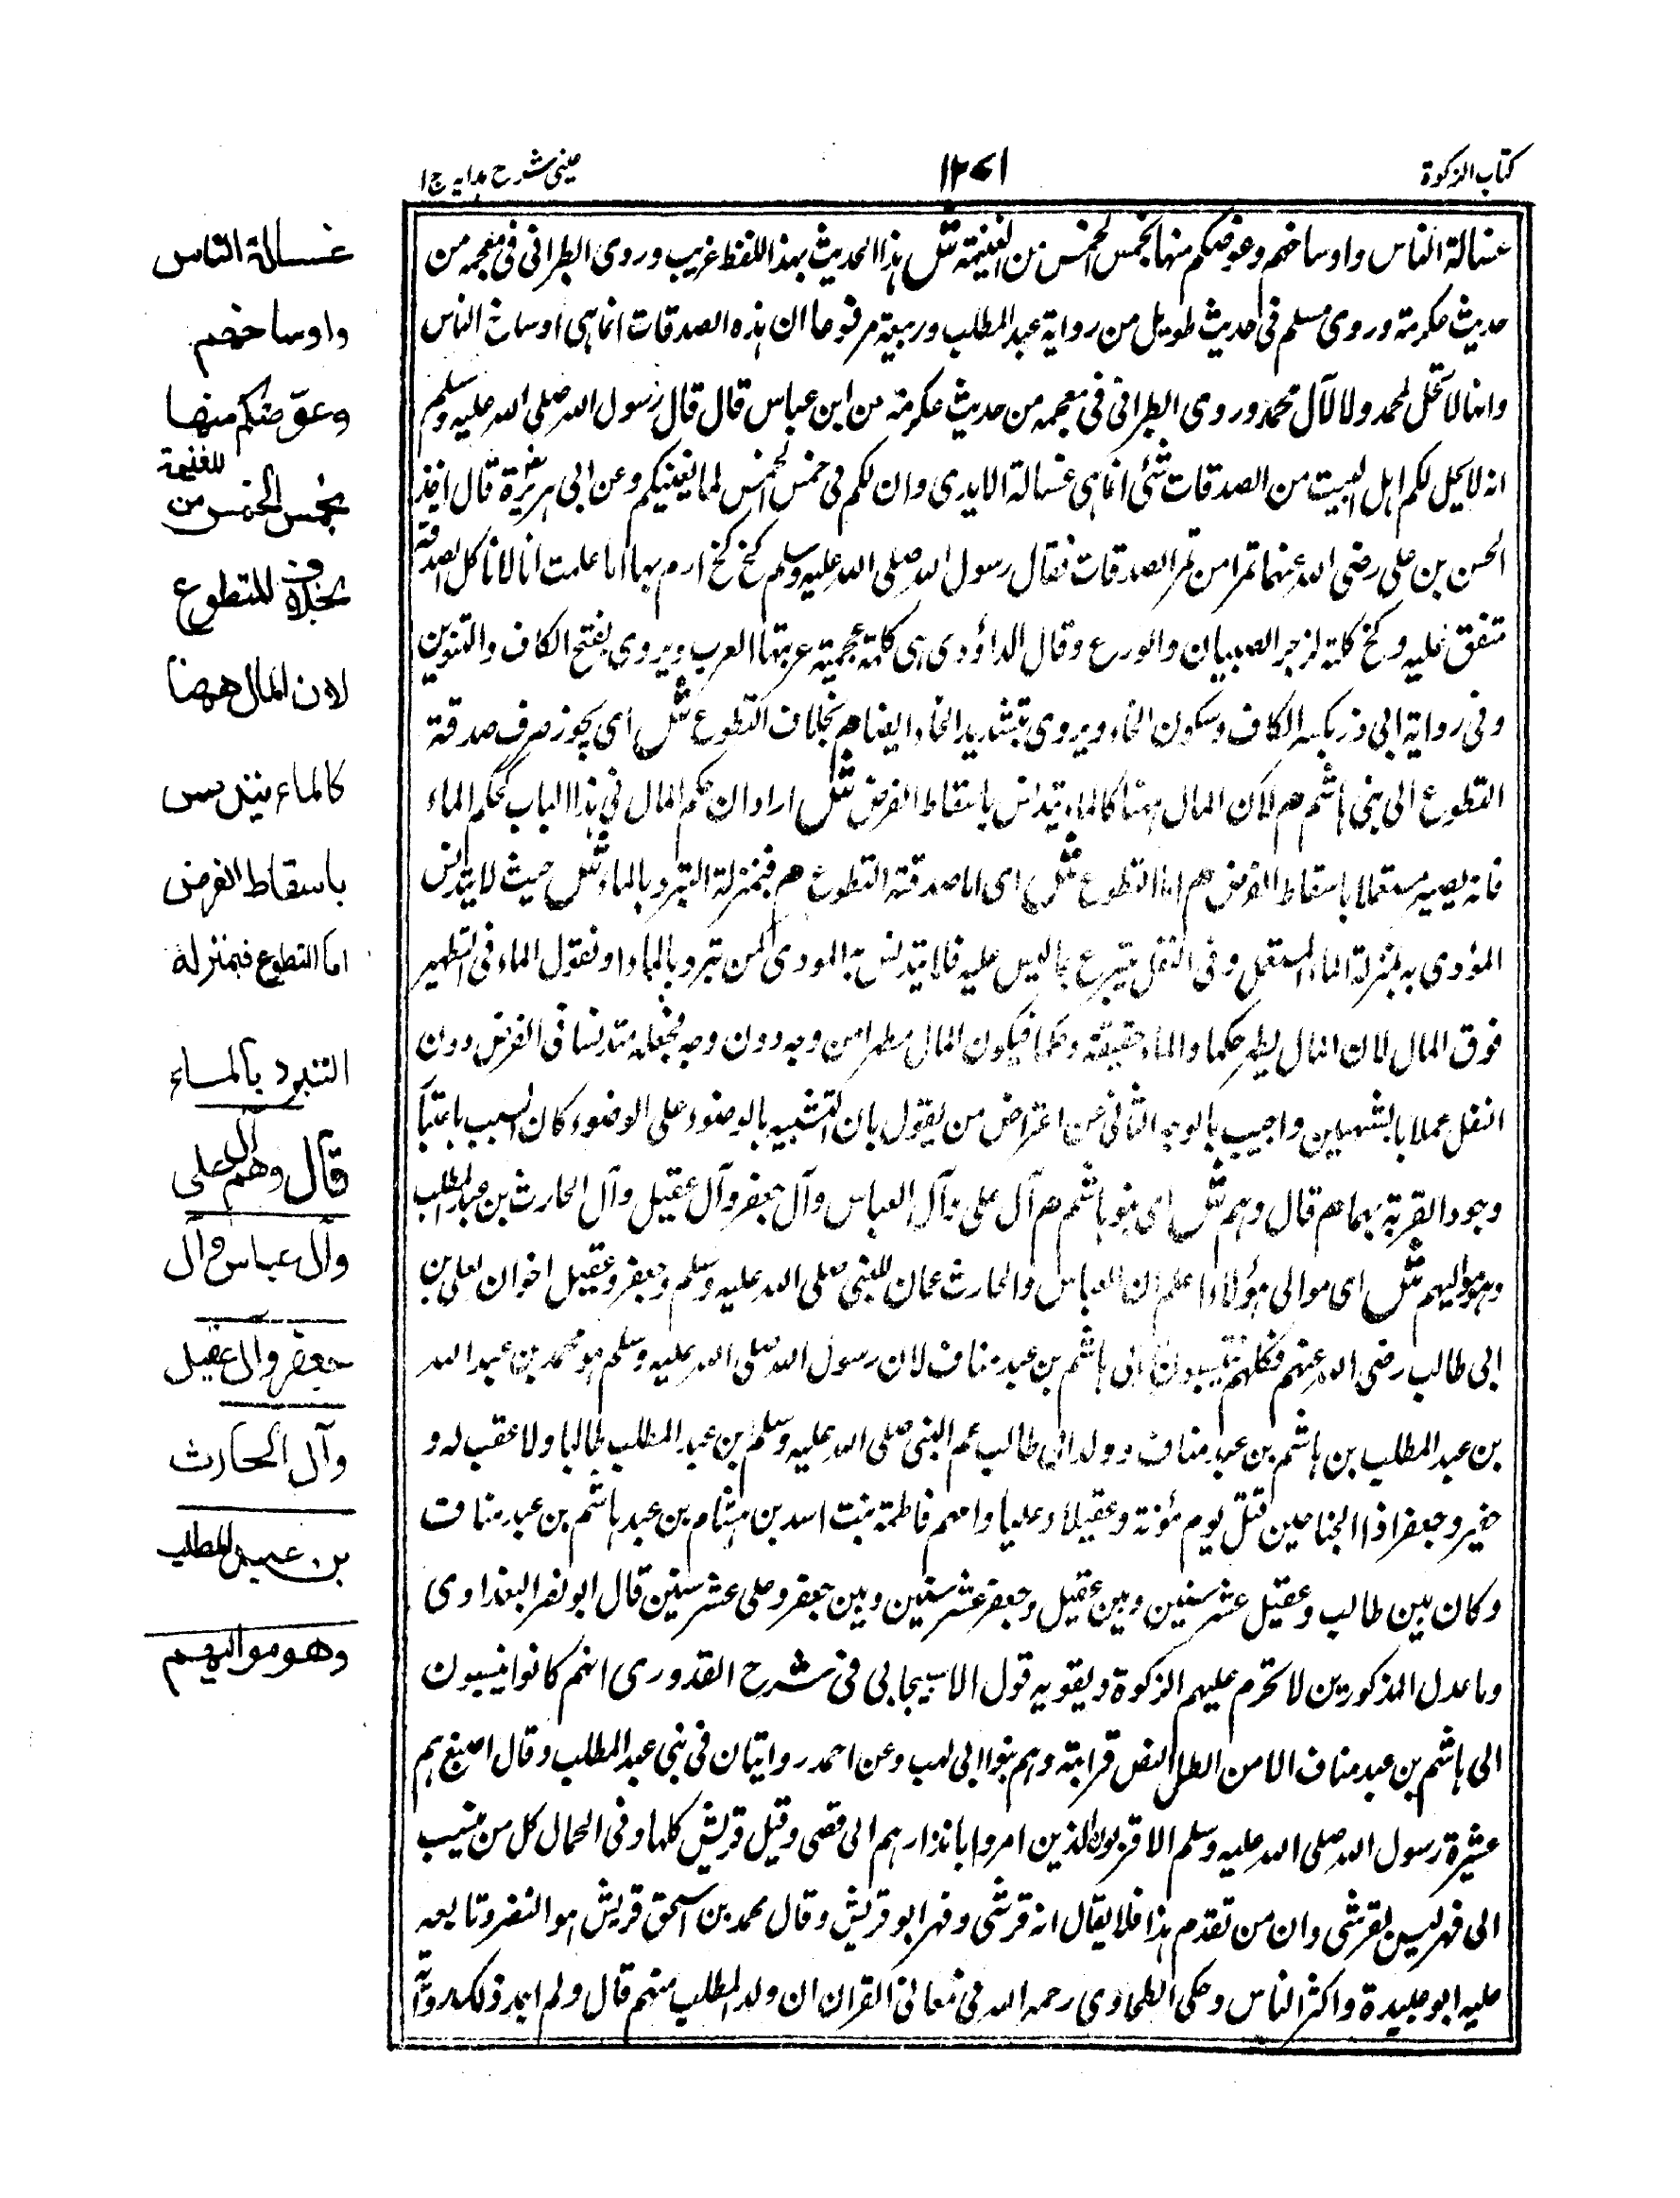 كتاب الزكوة
١٢٧١
عينى شرح هدايه ج ١
غسالة الناس واوساخهم وعوضكم منها بخمس الخمس من الغنيمة ش هذا الحديث بهذا اللفظ غريب وروى الطبرانى فى معجمه من
حديث عكرمة وروى مسلم فى حديث طويل من رواية عبد المطلب وربيعة مرفوعا ان هذه الصدقات انما هى اوساخ الناس
وانها لا تحل لمحمد ولا لآل محمد وروى الطبرانى فى معجمه من حديث عكرمة عن ابن عباس قال قال رسول الله صلى الله عليه وسلم
انه لا يحل لكم اهل البيت من الصدقات شئ انما هى غسالة الايدى وان لكم فى خمس الخمس لما يغنيكم وعن ابى هريرة قال اخذ
الحسن بن على رضى الله عنهما تمرا من تمر الصدقات فقال رسول الله صلى الله عليه وسلم كخ كخ ارم بها اما علمت انا لا ناكل الصدقة
متفق عليه وكخ كلمة لزجر الصبيان والورع وقال الداؤدى هى كلمة عجمية عربتها العرب ويروى بفتح الكاف والتنوين
وفى رواية ابى ذر بكسر الكاف وسكون الخاء ويروى بتشديد الخاء ايضا هم بخلاف التطوع ش اى يجوز صرف صدقة
التطوع الى بنى هاشم هم لان المال ههنا كالماء يتدنس باسقاط الفرض ش اراد ان حكم المال فى هذا الباب كحكم الماء
فانه يصير مستعملا باسقاط الفرض هم اما التطوع ش اى اما صدقة التطوع هم فبمنزلة التبرد بالماء ش حيث لا يتدنس
المؤدى به بمنزلة الماء المستعمل وفى النفل يتبرع بما ليس عليه فلا يتدنس به المودى كمن تبرد بالماء او نقول الماء فى التطهير
فوق المال لان المال يطهر حكما والماء حقيقة وحكما فيكون المال مطهرا من وجه دون وجه فجعله متدنسا فى الفرض دون
النفل عملا بالشبهين واجيب بالوجه الثانى عن اعتراض من يقول بان التشبيه بالوضوء على الوضوء كان انسب باعتبا
وجود القربة بهما هم قال وهم ش اى بنو هاشم هم آل على وآل العباس وآل جعفر وآل عقيل وآل الحارث بن عبد المطلب
وهو مواليهم ش اى موالى هؤلاء اعلم ان العباس والحارث عمان للنبى صلى الله عليه وسلم وجعفر وعقيل اخوان لعلى بن
ابى طالب رضى الله عنهم فكلهم ينسبون الى هاشم بن عبد مناف لان رسول الله صلى الله عليه وسلم هو محمد بن عبد الله
بن عبد المطلب بن هاشم بن عبد مناف وولد ابى طالب عم النبى صلى الله عليه وسلم بن عبد المطلب طالبا ولا عقب له و
جعفر وجعفرا ذا الجناحين قتل يوم مؤتة وعقيلا وعليا وامهم فاطمة بنت اسد بن هشام بن عبد هاشم بن عبد مناف
وكان بين طالب وعقيل عشر سنين وبين عقيل وجعفر عشر سنين وبين جعفر وعلى عشر سنين قال ابو نصر البغداوى
وما عدل المذكورين لا تحرم عليهم الزكوة ويقويه قول الاسبيجابى فى شرح القدورى انهم كانوا ينسبون
الى هاشم بن عبد مناف الا من ابطل النص قرابته وهم بنوا ابى لهب وعن احمد روايتان فى بنى عبد المطلب وقال اصبغ هم
عشيرة رسول الله صلى الله عليه وسلم الاقربون الذين امروا بانذارهم الى قصى وقيل قريش كلها وفى الحال كل من ينسب
الى فهر ليس بقرشى وان من تقدم هذا فلا يقال انه قرشى وفهر ابو قريش وقال محمد بن اسحق قريش هو النضر وتابعه
عليه ابو عبيدة واكثر الناس وحكى الطحاوى رحمه الله فى معانى القران ان ولد المطلب منهم قال ولم اجد ذلك رواية
غسالة الناس
واوساخهم
وعوّضكم منها
بخمس الخمس من
للغنيمة
بخلاف للتطوع
لان المال ههنا
كالماء يتدنس
باسقاط الفرض
اما التطوع فبمنزلة
التبرد بالماء
قال وهم آل على
وآل عباس وآل
جعفر وآل عقيل
وآل الحارث
بن عبد المطلب
وهو مواليهم